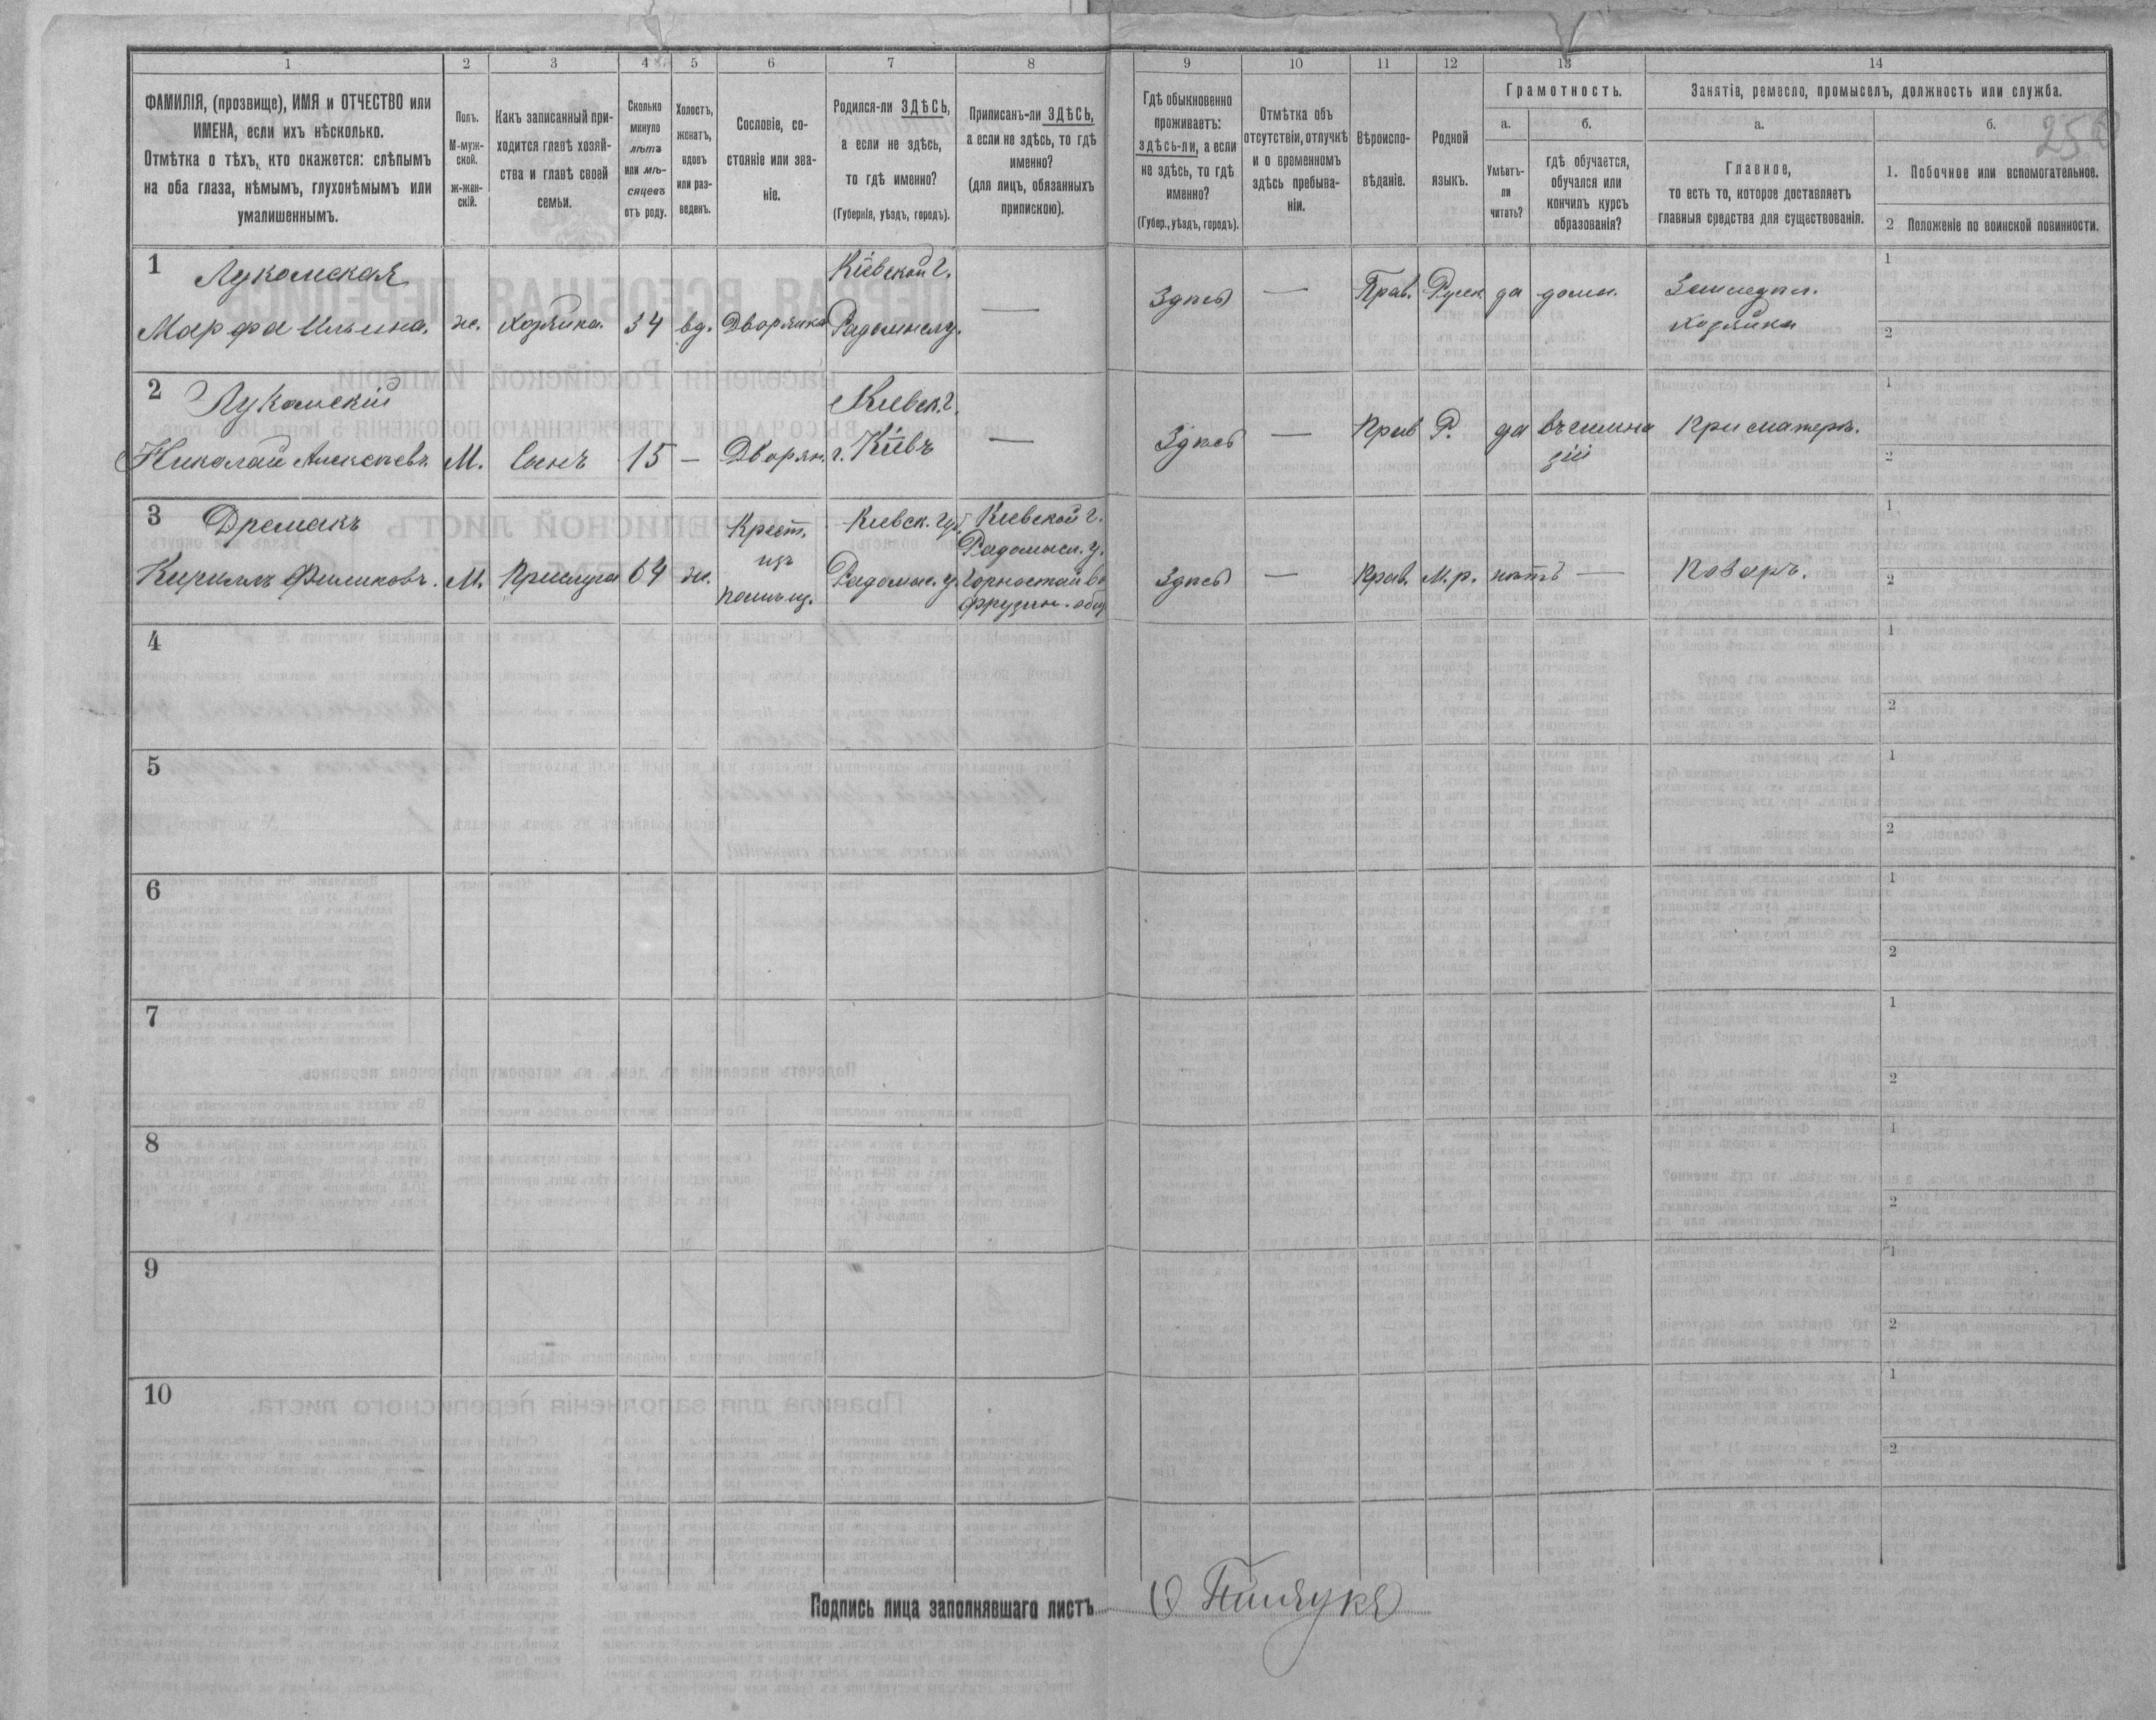 1 2 3 4 5 6 7 8 9 10 11 12 13 14
ФАМИЛІЯ, (прозвище), ИМЯ и ОТЧЕСТВО или
ИМЕНА, если ихъ нѣсколько.
Отмѣтка о тѣхъ, кто окажется: слѣпымъ
на оба глаза, нѣмымъ, глухонѣмымъ или
умалишеннымъ.
Полъ.
М-муж-
ской.
ж-жен-
скій.
Какъ записанный при-
ходится главѣ хозяй-
ства и главѣ своей
семьи.
Сколько
минуло
лѣтъ
или мѣ-
сяцевъ
отъ роду.
Холостъ,
женатъ,
вдовъ
или раз-
веденъ.
Сословіе, со-
стояніе или зва-
ніе.
Родился-ли ЗДѢСЬ,
а если не здѣсь,
то гдѣ именно?
(Губернія, уѣздъ, городъ).
Приписанъ-ли ЗДѢСЬ,
а если не здѣсь, то гдѣ
именно?
(для лицъ, обязанныхъ
припискою).
Гдѣ обыкновенно
проживаетъ:
здѣсь-ли, а если
не здѣсь, то гдѣ
именно?
(Губер., уѣздъ, городъ).
Отмѣтка объ
отсутствіи, отлучкѣ
и о временномъ
здѣсь пребыва-
ніи.
Вѣроиспо-
вѣданіе.
Родной
языкъ.
Грамотность.
а.
Умѣетъ-
ли
читать?
б.
гдѣ обучается,
обучался или
кончилъ курсъ
образованія?
Занятіе, ремесло, промыселъ, должность или служба.
а.
Главное,
то есть то, которое доставляетъ
главныя средства для существованія.
б.
1. Побочное или вспомогательное.
2 Положеніе по воинской повинности.
1 Лукомская
Марфа Ильина. ж. Хозяйка. 34 вд. Дворянка
Кіевской г.
Радомысл у. —
Здѣсь — Прав. Русск да дома.
Земледѣл.
хозяйка
1
2
2 Лукомскій
Николай Алексѣевъ. М. Сынъ 15 — Дворян.
Кіевск. г.
г. Кіевъ —
Здѣсь — Прав Р. да въ гимна
зіи
При матери.
1
2
3 Дремакъ
Кириллъ Филиповъ. М. Прислуга 64 ж.
Крест.
изъ
помѣщ.
Кіевск. губ.
Радомыс. у.
Кіевской г.
Радомысл. у.
Горностай. во
Фрузин. общ
Здѣсь — Прав. М. р. нѣтъ — Поваръ.
1
2
4
1
2
5
1
2
6
1
2
7
1
2
8
1
2
9
1
2
10
1
2
Подпись лица заполнявшаго листъ